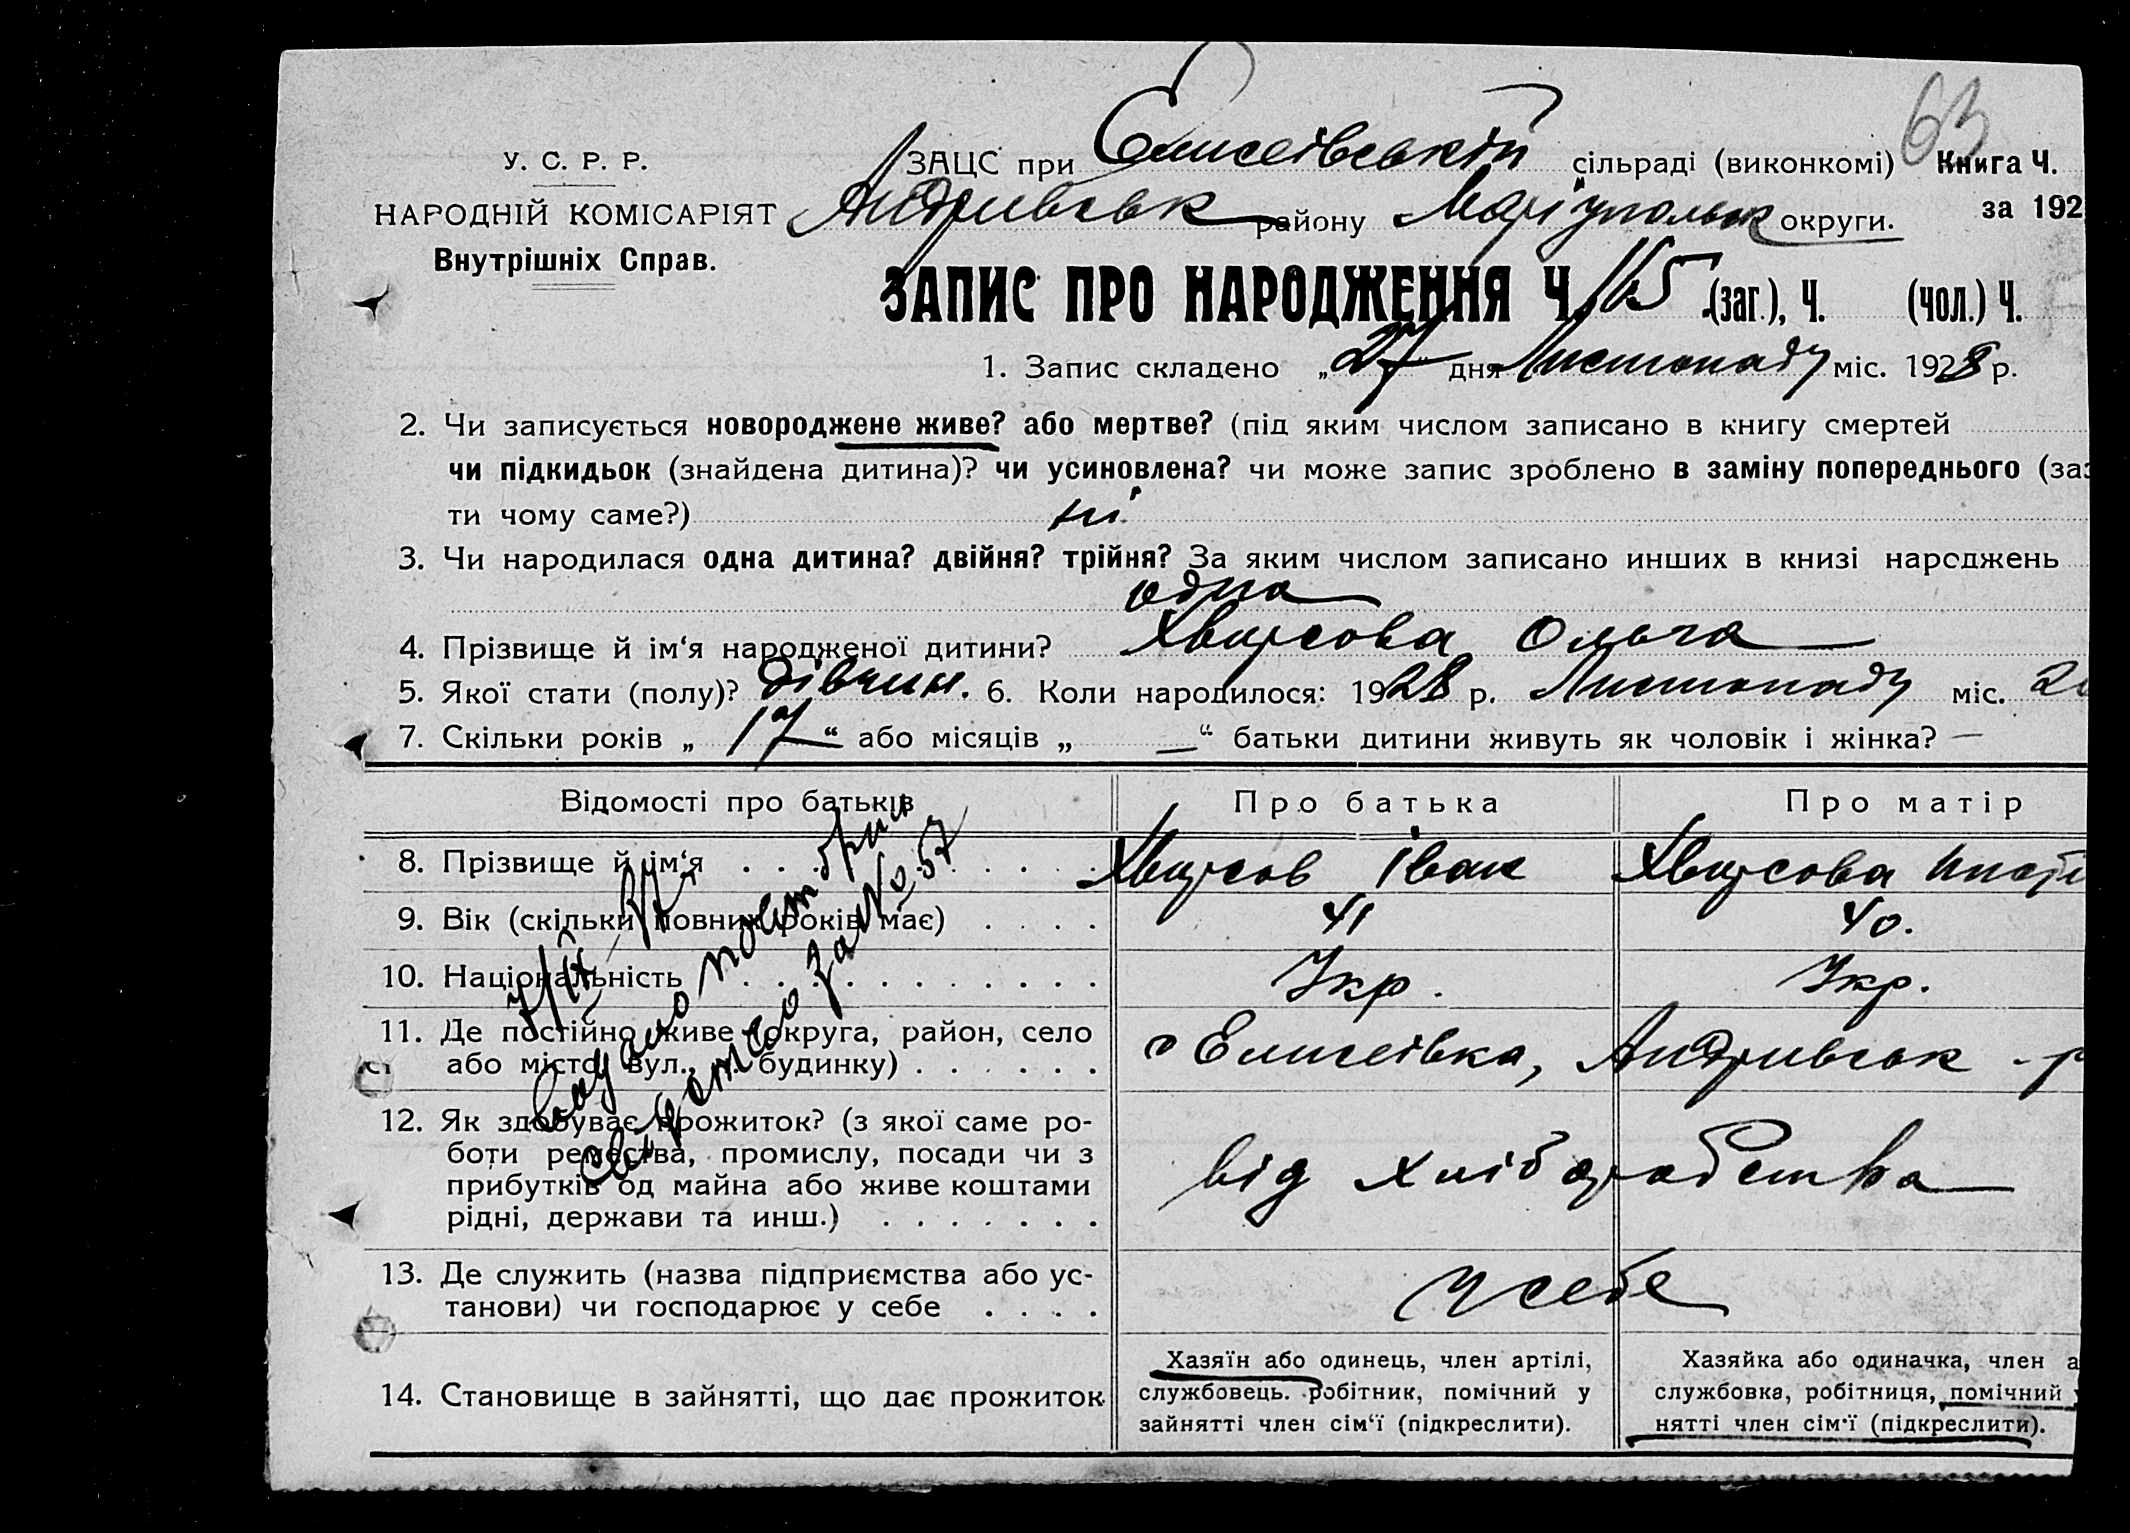 63
У. С. Р. Р.
НАРОДНІЙ КОМІСАРІЯТ
Внутрішніх Справ.
ЗАЦС при Єлисеївській сільраді (виконкомі) Книга Ч.
Андриівськ району Маріупольськ округи. за 192
ЗАПИС ПРО НАРОДЖЕННЯ Ч. 165 (заг.), Ч. (чол.) Ч.
1. Запис складено „27“ дня Листопаду міс. 1928 р.
2. Чи записується новороджене живе? або мертве? (під яким числом записано в книгу смертей
чи підкидьок (знайдена дитина)? чи усиновлена? чи може запис зроблено в заміну попереднього (заз
ти чому саме?) ні
3. Чи народилася одна дитина? двійня? трійня? За яким числом записано инших в книзі народжень
одна
4. Прізвище й ім‘я народженої дитини? Хвирсова Ольга
5. Якої стати (полу)? дівчин. 6. Коли народилося: 1928 р. Листопаду міс. 2
7. Скільки років „17“ або місяців „—“ батьки дитини живуть як чоловік і жінка? —
Відомості про батьків Про батька Про матір
8. Прізвище й ім‘я . . . . Хвирсов Іван Хвирсова
9. Вік (скільки повних років має) . . . . 41 40.
10. Національність . . . . Укр. Укр.
11. Де постійно живе (округа, район, село
або місто, вул., будинку) . . . . . . с Єлисеївка, Андриівськ - р
12. Як здобуває прожиток? (з якої саме ро-
боти ремества, промислу, посади чи з
прибутків од майна або живе коштами
рідні, держави та инш.) . . . . . . . від хліборобства
13. Де служить (назва підприємства або ус-
танови) чи господарює у себе . . . . у себе
14. Становище в зайнятті, що дає прожиток
Хазяїн або одинець, член артілі,
службовець. робітник, помічний у
зайнятті член сім‘ї (підкреслити).
Хазяйка або одиначка, член а
службовка, робітниця, помічний у
нятті член сім‘ї (підкреслити).
7/IX 37
Выдано повторн
свідотсво за № 57